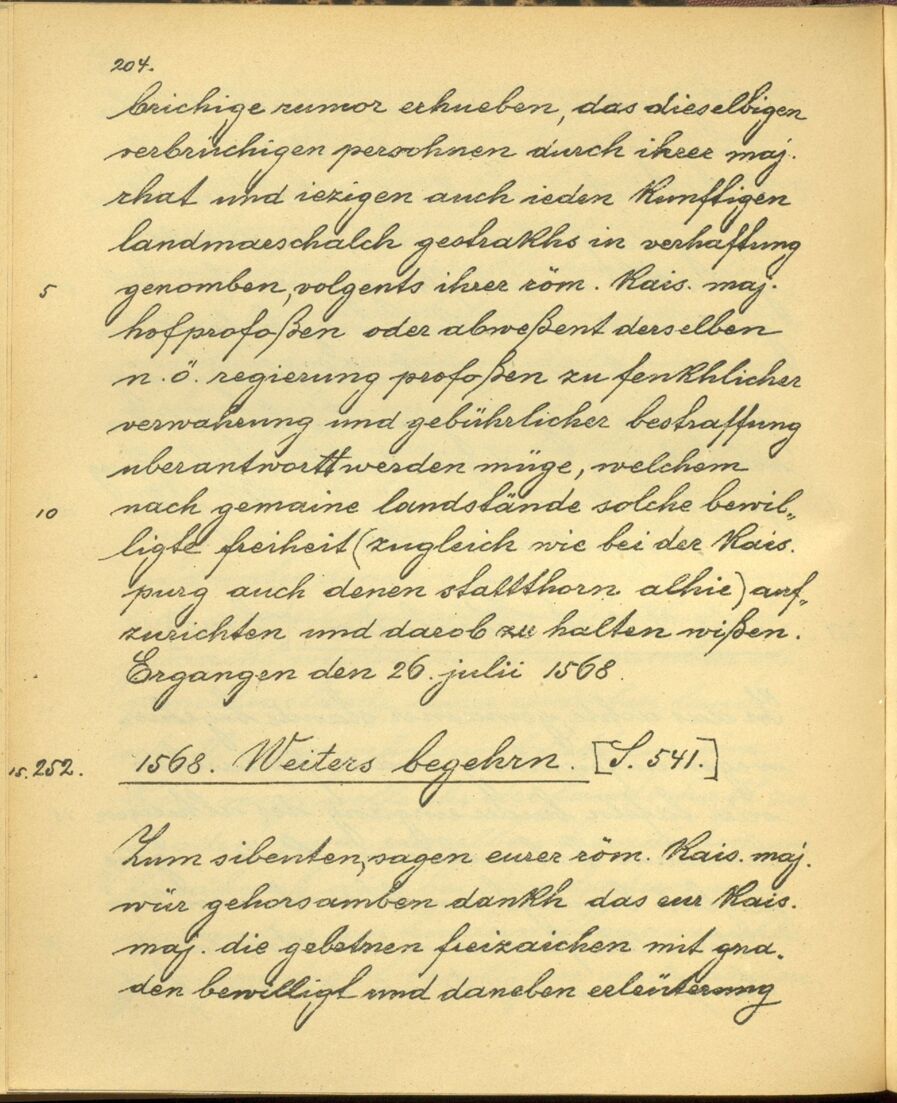 204.
brichige rumor erhueben, das dieselbigen
verbrüchigen persohnen durch ihrer maj.
rhat und iezigen auch ieden Kunfftigen
landmaeschalch gestrakhs in verhafftung
5 genomben, volgents ihrer röm. Kais. maj.
hofprofoßen oder abweßent derselben
n. ö. regierung profoßen zu fenkhlicher
verwahrung und gebührlicher bestraffung
uberantwortt werden müge, welchem
10 nach gemaine landstände solche bewil„
ligte freiheit (zugleich wie bei der Kais.
purg auch denen stattthorn alhie) auf„
zurichten und darob zu halten wißen.
Ergangen den 26. julii 1568.
15. 252. 1568. Weiters begehrn. [S. 541.]
Zum sibenten, sagen eurer röm. Kais. maj.
wür gehorsamben dankh das eur Kais.
maj. die gebetnen freizaichen mit gna„
den bewilligt und daneben erleüterung